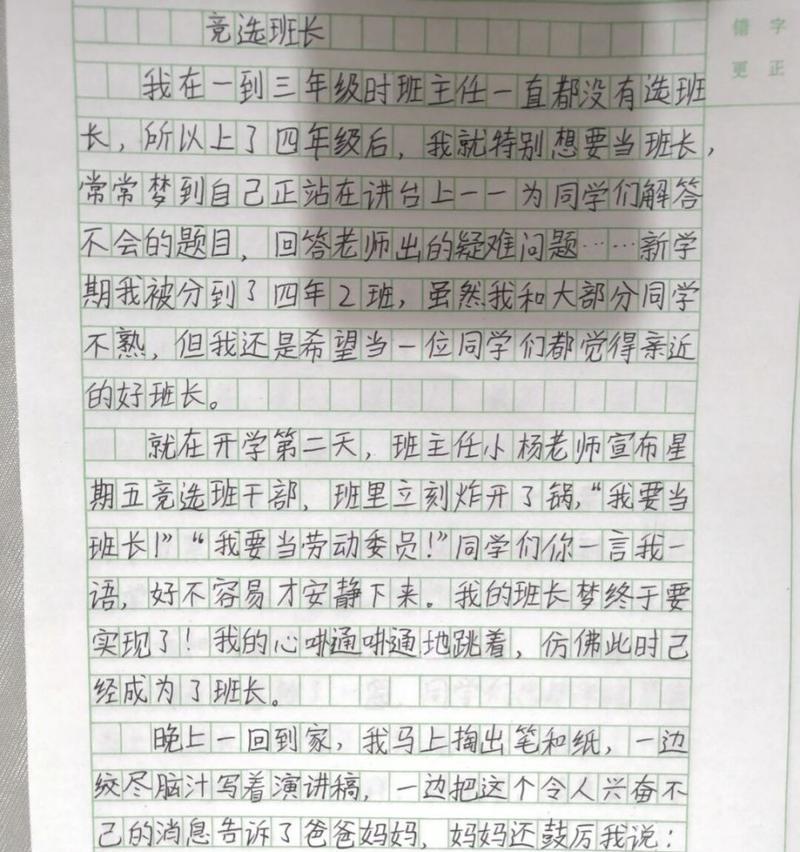 竞选班长
错字
更正
我在一到三年级时班主任一直都没有选班
长，所以上了四年级后，我就特别想要当班长，
常常梦到自己正站在讲台上——为同学们解答
不会的题目，回答老师出的疑难问题……新学
期我被分到了四年2班，虽然我和大部分同学
不熟，但我还是希望当一位同学们都觉得亲近
的好班长。
就在开学第二天，班主任小杨老师宣布星
期五竞选班干部，班里立刻炸开了锅，“我要当
班长！”“我要当劳动委员！”同学们你一言我一
语，好不容易才安静下来。我的班长梦终于要
实现了！我的心咈通咈通地跳着，仿佛此时己
经成为了班长。
晚上一回到家，我马上掏出笔和纸，一边
绞尽脑汁写着演讲稿，一边把这个令人兴奋不
己的消息告诉了爸爸妈妈，妈妈还鼓厉我说：